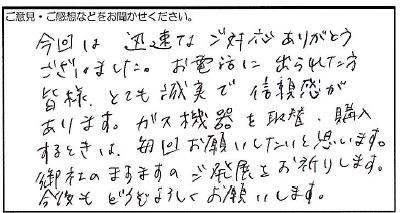 ご意見・ご感想などをお聞かせください。
今回は 迅速な ご対応 ありがとう
ございました。お電話に 出られた方
皆様、とても 誠実で 信頼感が
あります。ガス機器を 取替、購入
するときは、毎回お願いしたいと思います。
御社のますますの ご発展をお祈りします。
今後も どうぞよろしくお願いします。